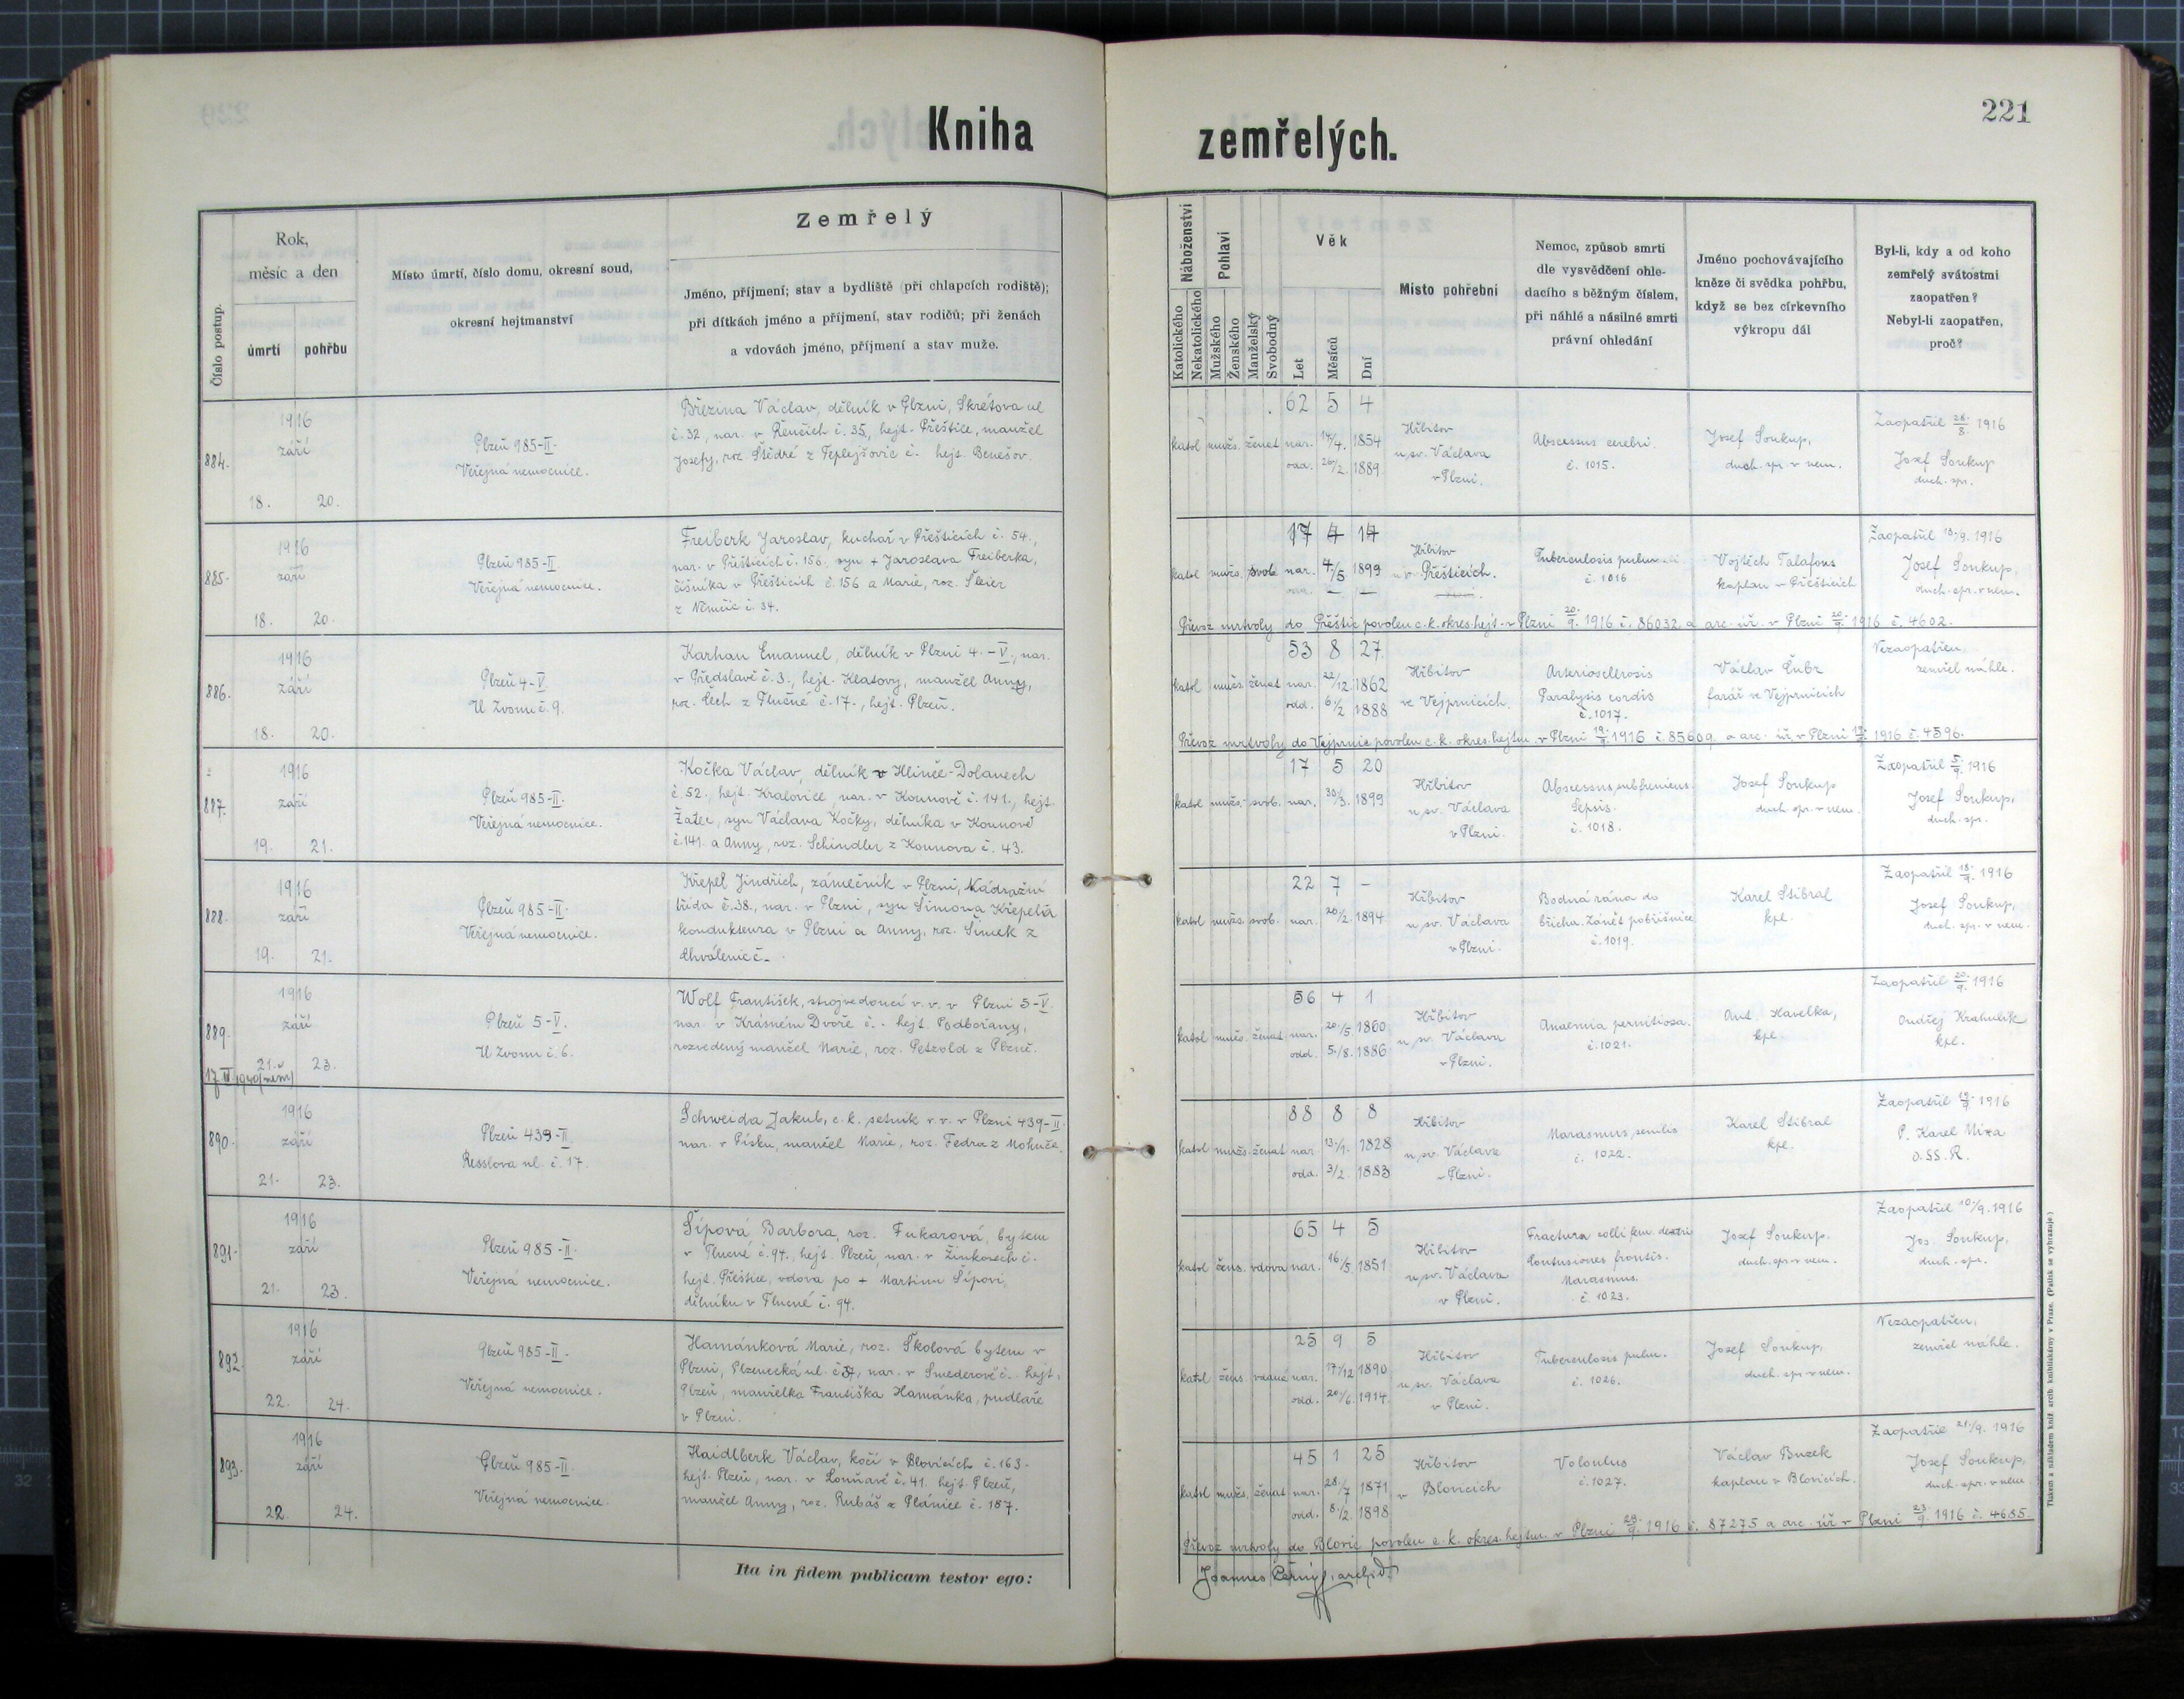 Kniha zemřelých.
221
Číslo postup.
Rok,
měsíc a den
úmrtí
pohřbu
Místo úmrtí, číslo domu, okresní soud,
okresní hejtmanství
Zemřelý
Jméno, příjmení; stav a bydliště (při chlapcích rodiště);
při dítkách jméno a příjmení, stav rodičů; při ženách
a vdovách jméno, příjmení a stav muže.
Náboženství
Katolického
Nekatolického
Pohlaví
Mužského
Ženského
Manželský
Svobodný
Věk
Let
Měsíců
Dní
Místo pohřební
Nemoc, způsob smrti
dle vysvědčení ohle-
dacího s běžným číslem,
při náhlé a násilné smrti
právní ohledání
Jméno pochovávajícího
kněze či svědka pohřbu,
když se bez církevního
výkropu dál
Byl-li, kdy a od koho
zemřelý svátostmi
zaopatřen?
Nebyl-li zaopatřen,
proč?
884.
1916
září
18. 20.
Plzeň 985-II.
Veřejná nemocnice.
Březina Václav, dělník v Plzni, Skrétova ul
č. 32, nar. v Řenčích č. 35, hejt. Přeštice, manžel
Josefy, roz. Štědré z Teplejšovic č. hejt. Benešov.
62 5 4
katol mužs. ženat nar. 14/4. 1854
odd. 26/2. 1889
Hřbitov
u sv. Václava
v Plzni.
Abscessus cerebri.
č. 1015.
Josef Soukup,
duch. spr. v nem.
Zaopatřil 28./8. 1916
Josef Soukup
duch. spr.
885.
1916
září
18. 20.
Plzeň 985-II.
Veřejná nemocnice.
Freiberk Jaroslav, kuchař v Přešticích č. 54.,
nar. v Přešticích č. 156. syn + Jaroslava Freiberka,
číšníka v Přešticích č. 156 a Marie, roz. Šleier
z Němčic č. 34.
17 4 14
katol mužs. svob. nar. 4/5 1899
Hřbitov
v Přešticích.
Tuberculosis pulm
č. 1016
Vojtěch Talafous
kaplan v Přešticích
Zaopatřil 13./9. 1916
Josef Soukup,
duch. spr. v nem.
Převoz mrtvoly do Přeštic povolen c. k. okres. hejt. v Plzni 20./9. 1916 č. 86032. a arc. úř. v Plzni 20./9. 1916 č. 4602.
886.
1916
září
18. 20.
Plzeň 4-V.
U Zvonu č. 9.
Karhan Emanuel, dělník v Plzni 4.-V., nar.
v Předslavi č. 3., hejt. Klatovy, manžel Anny,
roz. Čech z Tlučné č. 17., hejt. Plzeň.
53 8 27.
katol mužs. ženat nar. 22/12 1862
odd. 6/2 1888
Hřbitov
ve Vejprnicích.
Arteriosclerosis
Paralysis cordis
č. 1017.
Václav Čubr
farář ve Vejprnicích
Nezaopatřen,
zemřel náhle.
Převoz mrtvoly do Vejprnic povolen c. k. okres. hejtm. v Plzni 19./9. 1916 č. 85609. a arc. úř. v Plzni 1916 č. 4596.
887.
1916
září
19. 21.
Plzeň 985-II.
Veřejná nemocnice.
Kočka Václav, dělník v Hlinče-Dolanech
č. 52., hejt. Kralovice, nar. v Kounově č. 141., hejt.
Žatec, syn Václava Kočky, dělníka v Kounově
č. 141. a Anny, roz. Schindler z Kounova č. 43.
17 5 20
katol mužs. svob. nar. 30/3. 1899
Hřbitov
u sv. Václava
v Plzni.
Abscessus subfrenicus.
Sepsis.
č. 1018.
Josef Soukup
duch. spr. v nem.
Zaopatřil 5./9. 1916
Josef Soukup,
duch. spr.
888.
1916
září
19. 21.
Plzeň 985-II.
Veřejná nemocnice.
Křepel Jindřich, zámečník v Plzni, Nádražní
třída č. 38., nar. v Plzni, syn Šimona Křepela
kondukteura v Plzni a Anny, roz. Šimek z
Chválenic č.
22 7 -
katol mužs. svob. nar. 20/2. 1894
Hřbitov
u sv. Václava
v Plzni.
Bodná rána do
břicha. Zánět pobřišnice
č. 1019.
Karel Stibral
kpl.
Zaopatřil 18./9. 1916
Josef Soukup,
duch. spr. v nem.
889.
1916
září
21. 23.
Plzeň 5-V.
U Zvonu č. 6.
Wolf František, strojvedoucí v. v. v Plzni 5-V.
nar. v Krásném Dvoře č. - hejt. Podbořany,
rozvedený manžel Marie, roz. Petzold z Plzně.
56 4 1
katol mužs. ženat nar. 20/5 1860
odd. 5./8. 1886
Hřbitov
u sv. Václava
v Plzni.
Anaemia pernitiosa.
č. 1021.
Ant. Havelka,
kpl.
Zaopatřil 20./9. 1916
Ondřej Krahulík
kpl.
890.
1916
září
21. 23.
Plzeň 439-II
Resslova ul. č. 17.
Schweida Jakub, c. k. setník v. v. v Plzni 439-II.
nar. v Písku, manžel Marie, roz. Fedra z Mohuče.
88 8 8
katol mužs. ženat nar. 13./1. 1828
odd. 3/2. 1883
Hřbitov
u sv. Václava
v Plzni.
Marasmus senilis
č. 1022.
Karel Stibral
kpl.
Zaopatřil 1916
P. Karel Mixa
O.SS.R.
891.
1916
září
21. 23.
Plzeň 985-II.
Veřejná nemocnice.
Šípová Barbora, roz. Fukarová, bytem
v Tlucné č. 94., hejt. Plzeň, nar. v Žinkovech č.
hejt. Přeštice, vdova po + Martinu Šípovi,
dělníku v Tlucné č. 94.
65 4 5
katol žens. vdova nar. 16/5 1851
Hřbitov
u sv. Václava
v Plzni.
Fractura colli fem. dextri
Contusiones frontis.
Marasmus.
č. 1023.
Josef Soukup.
duch. spr. v nem.
Zaopatřil 10./9. 1916
Jos. Soukup,
duch. spr.
892.
1916
září
22. 24.
Plzeň 985-II.
Veřejná nemocnice.
Hamánková Marie, roz. Školová bytem v
Plzni, Plzenecká ul. nar. v Smederově č. hejt.
Plzeň, manželka Františka Hamánka, pudlaře
v Plzni.
25 9 5
katol žens. vdaná nar. 17/12 1890
odd. 20/6. 1914.
Hřbitov
u sv. Václava
v Plzni.
Tuberculosis pulm.
č. 1026.
Josef Soukup,
duch. spr. v nem.
Nezaopatřen,
zemřel náhle.
893.
1916
září
22. 24.
Plzeň 985-II.
Veřejná nemocnice.
Haidlberk Václav, kočí v Blovicích č. 163.
hejt. Plzeň, nar. v č. 41. hejt. Plzeň,
manžel Anny, roz. Rubáš z Plánice č. 187.
45 1 25
katol mužs. ženat nar. 28./7 1871
odd. 8./2. 1898
Hřbitov
v Blovicích
Volvulus
č. 1027.
Václav Buzek
kaplan v Blovicích.
Zaopatřil 21./9. 1916
Josef Soukup,
duch. spr. v nem
Převoz mrtvoly do Blovic povolen c. k. okres. hejtm. v Plzni 1916 č. 87275 a arc. úř. v Plzni 23./9. 1916 č. 4685.
Ita in fidem publicam testor ego:
Joannes Černý, archid.